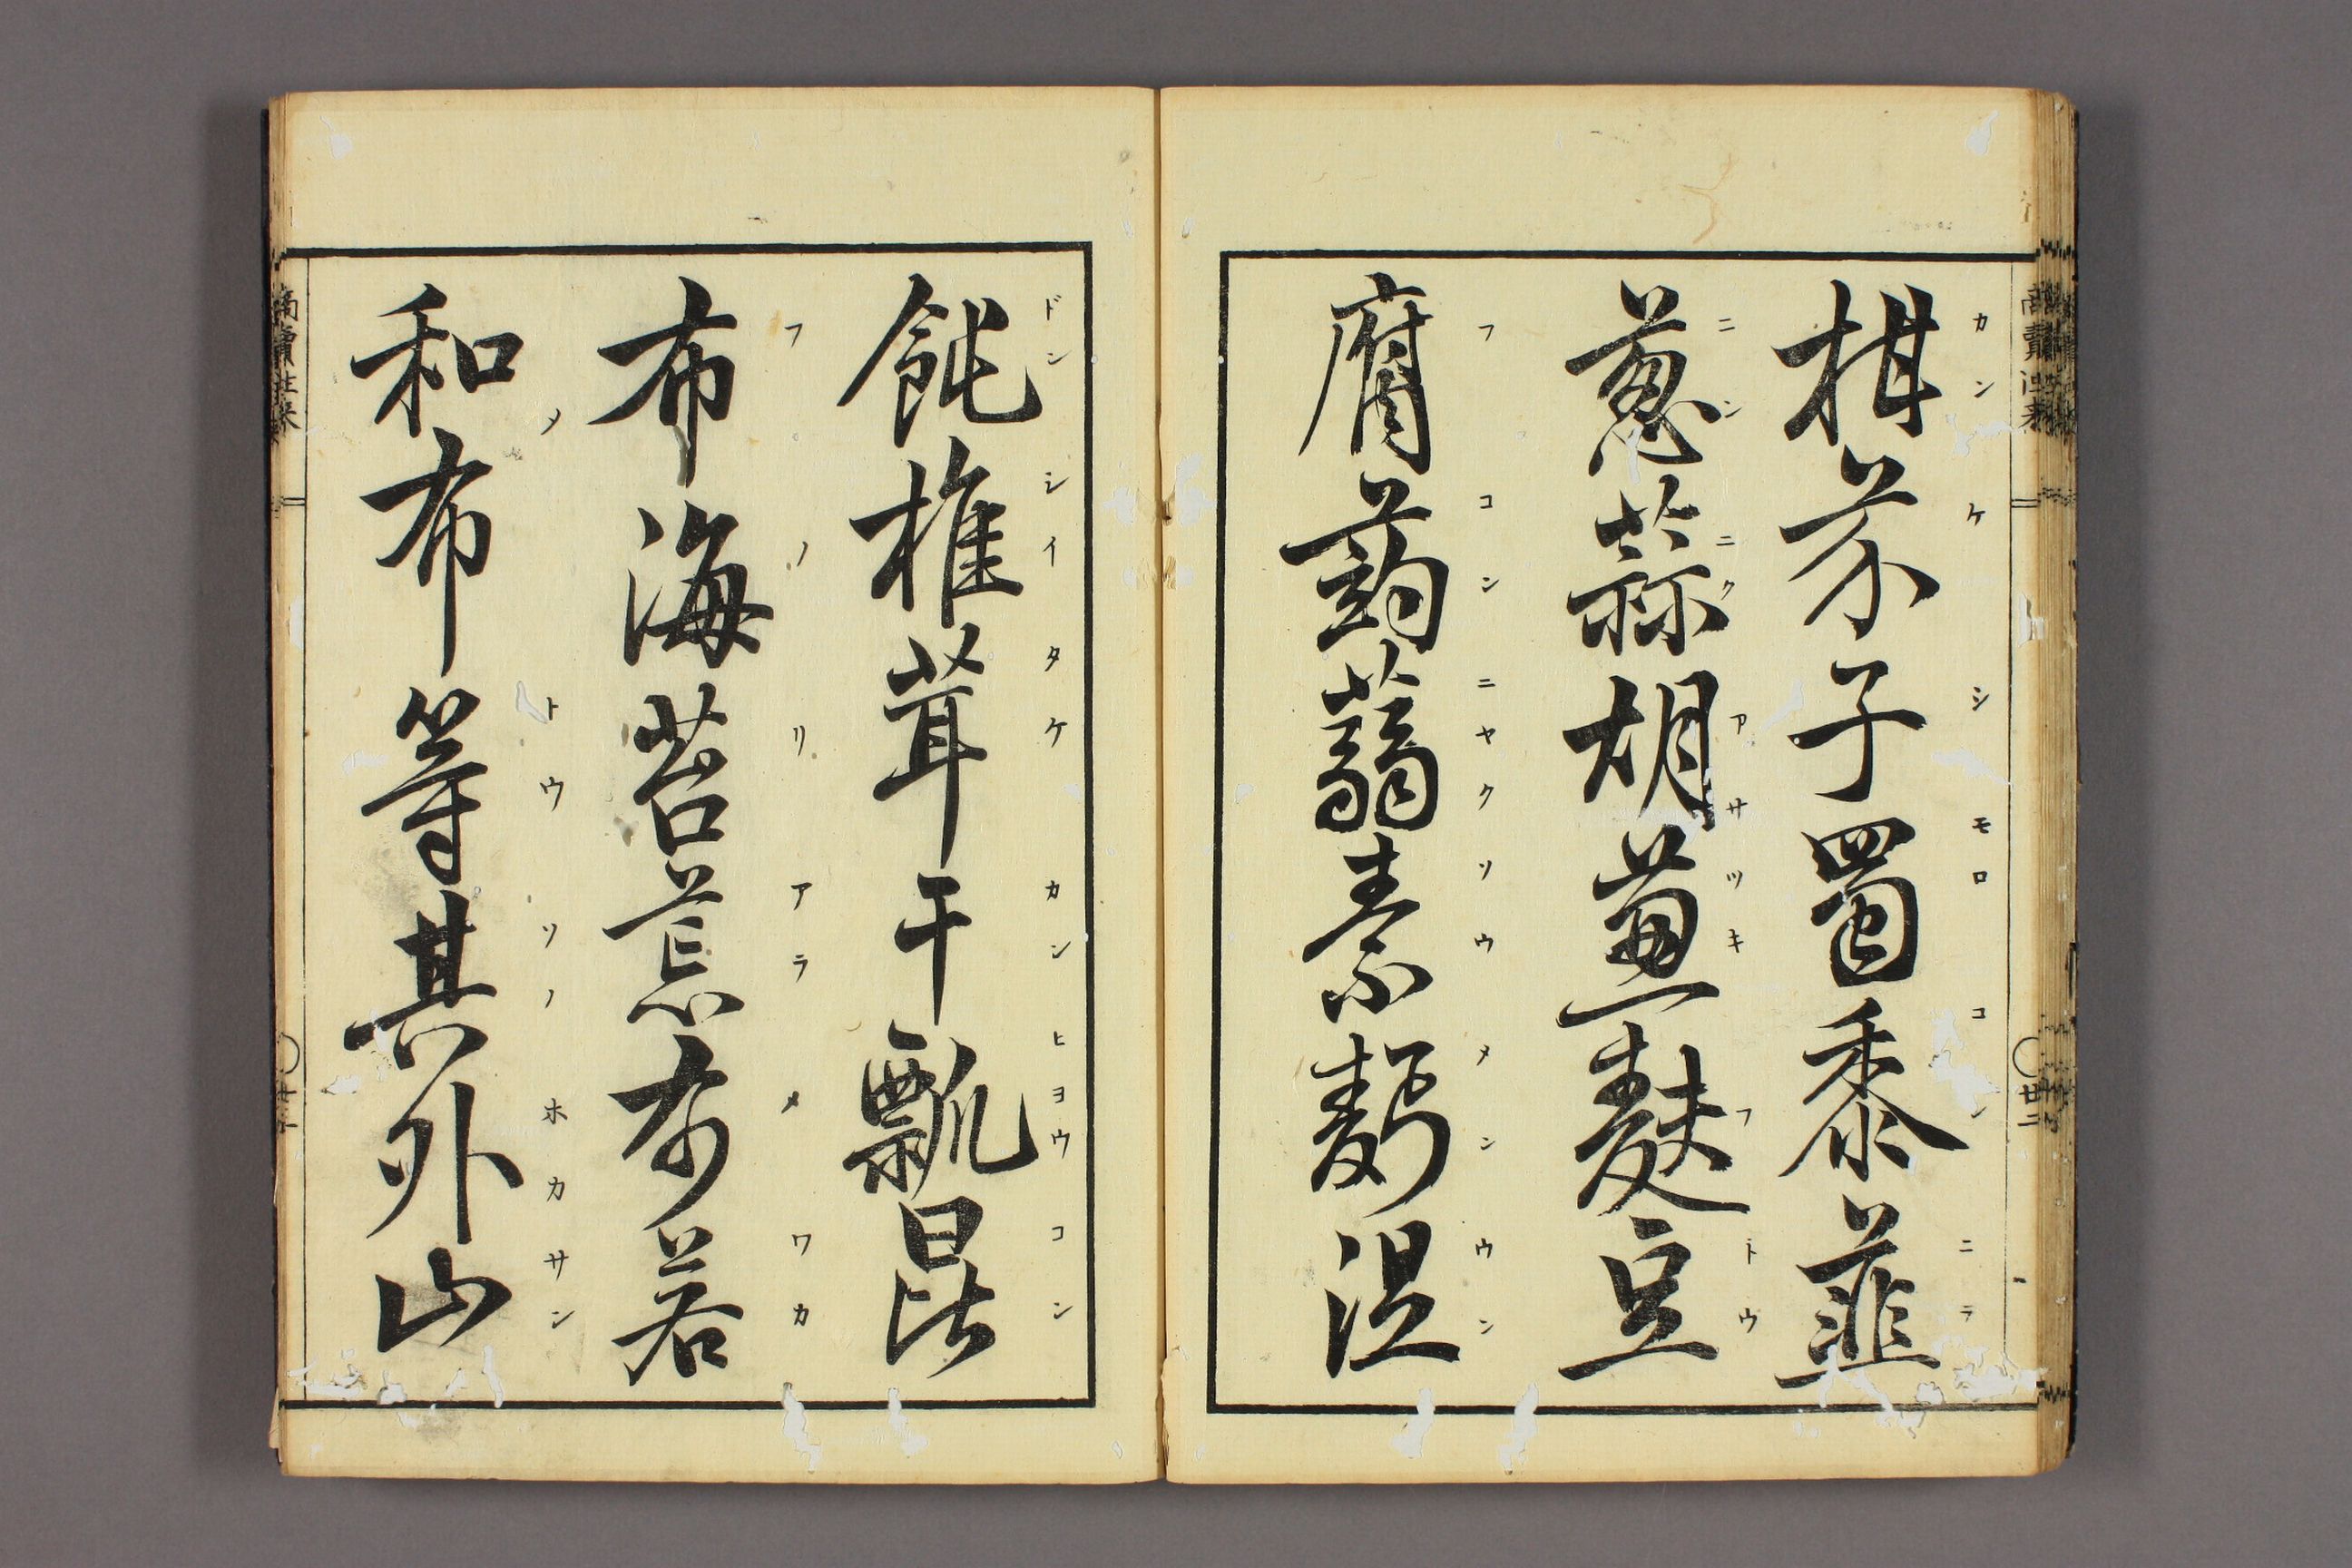 商賣往来
廿二
カンケシモロコシニラ
柑芥子蜀黍韮
ニンニクアサツキフトウ
葱蒜胡葱麩豆
フコンニヤクソウメンウン
腐蒟蒻素麪温
ドンシイタケカンヒヨウコン
飩椎茸干瓢昆
フノリアラメワカ
布海苔荒布若
メトウソノホカサン
和布等其外山
商賣往来